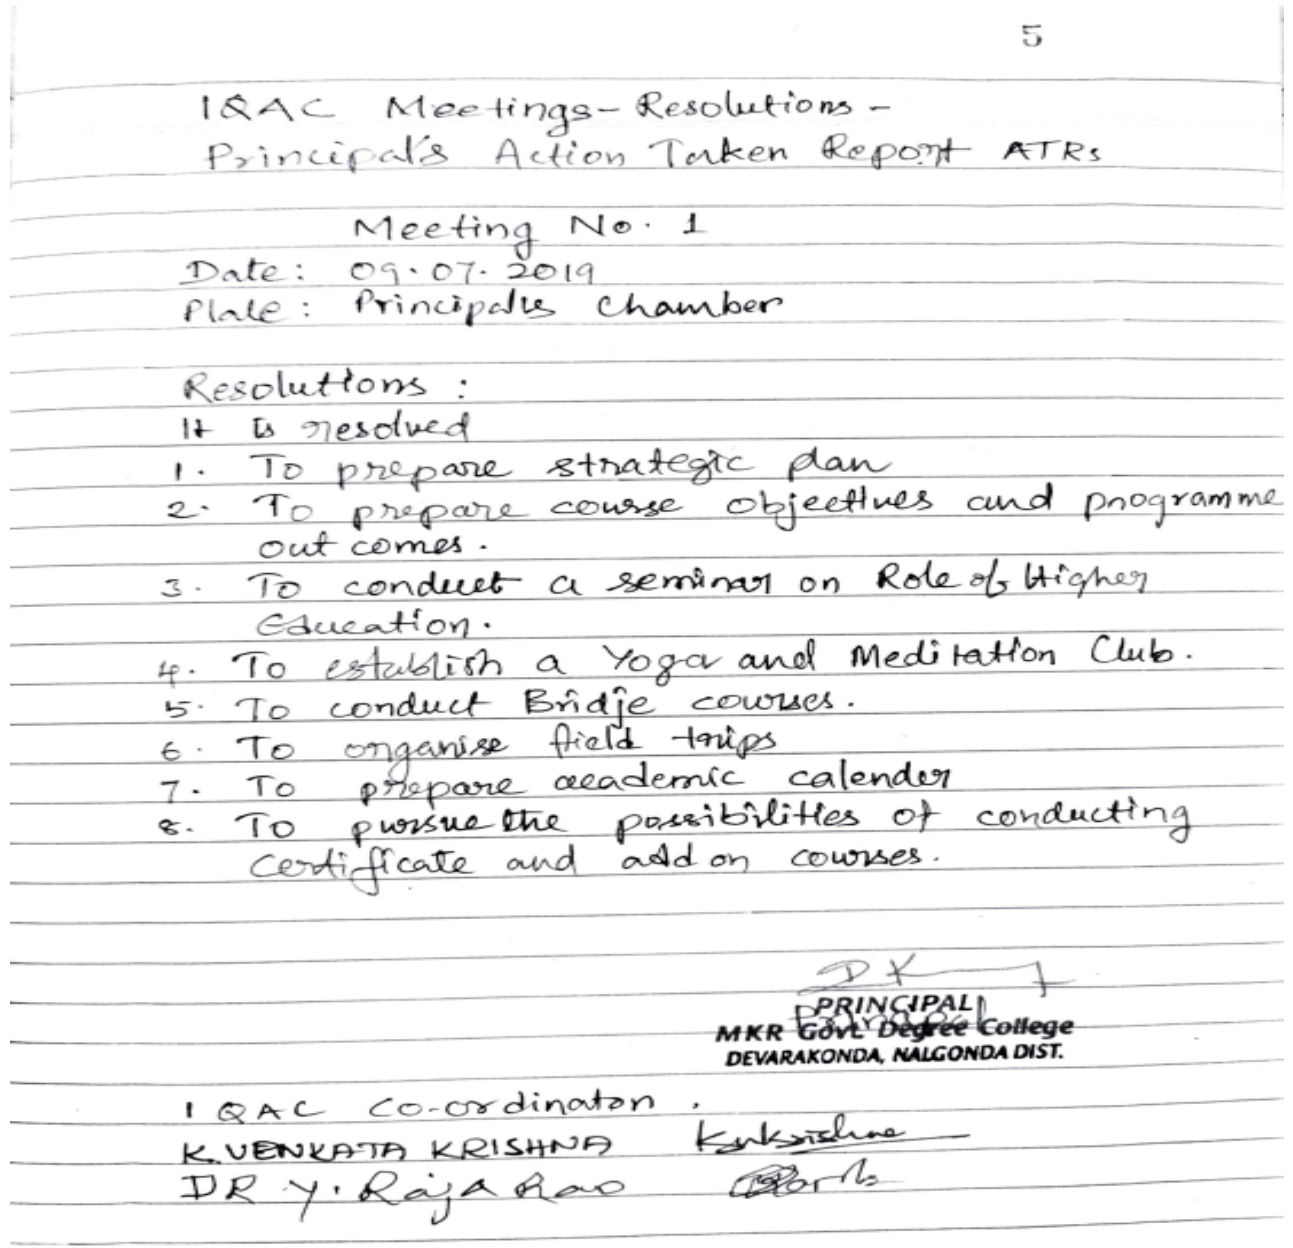 5
IQAC Meetings - Resolutions -
Principal's Action Taken Report ATRs
Meeting No. 1
Date : 09.07.2019
Place : Principal's Chamber
Resolutions :
It is resolved
1. To prepare strategic plan
2. To prepare course objectives and programme
out comes.
3. To conduct a seminar on Role of Higher
Education.
4. To establish a Yoga and Meditation Club.
5. To conduct Bridje courses.
6. To organise field trips
7. To prepare academic calender
8. To pursue the possibilities of conducting
Certificate and add on courses.
PRINCIPAL
Principal
MKR Govt Degree College
DEVARAKONDA, NALGONDA DIST.
IQAC Co-ordinator.
K. VENKATA KRISHNA Kvkrishna
DR Y. Raja Rao